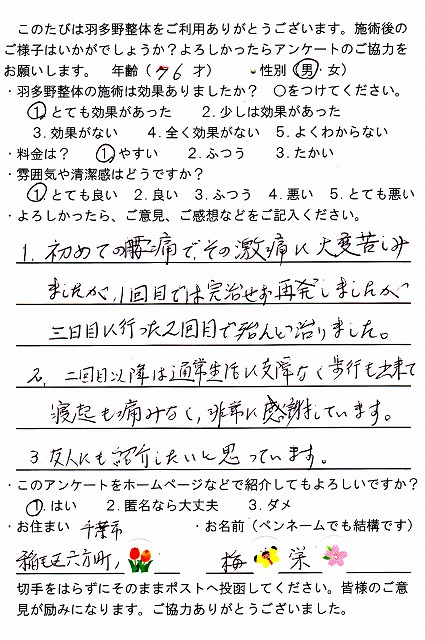 このたびは羽多野整体をご利用ありがとうございます。施術後の
ご様子はいかがでしょうか？よろしかったらアンケートのご協力を
お願いします。 年齢（76才） ・性別（男・女）
・羽多野整体の施術は効果ありましたか？ ○をつけてください。
1.とても効果があった 2.少しは効果があった
3.効果がない 4.全く効果がない 5.よくわからない
・料金は？ 1.やすい 2.ふつう 3.たかい
・雰囲気や清潔感はどうですか？
1.とても良い 2.良い 3.ふつう 4.悪い 5.とても悪い
・よろしかったら、ご意見、ご感想などをご記入ください。
1. 初めての腰痛で、その激痛に大変苦しみ
ましたが、1回目では完治せず再発しましたが
三日目に行った2回目で殆んど治りました。
2. 二回目以降は通常生活に支障なく歩行も出来て
寝起も痛みなく、非常に感謝しています。
3 友人にも紹介したいと思っています。
・このアンケートをホームページなどで紹介してもよろしいですか？
1.はい 2.匿名なら大丈夫 3.ダメ
・お住まい 千葉市 ・お名前（ペンネームでも結構です）
稲毛区六方町 梅 栄
切手をはらずにそのままポストへ投函してください。皆様のご意
見が励みになります。ご協力ありがとうございました。